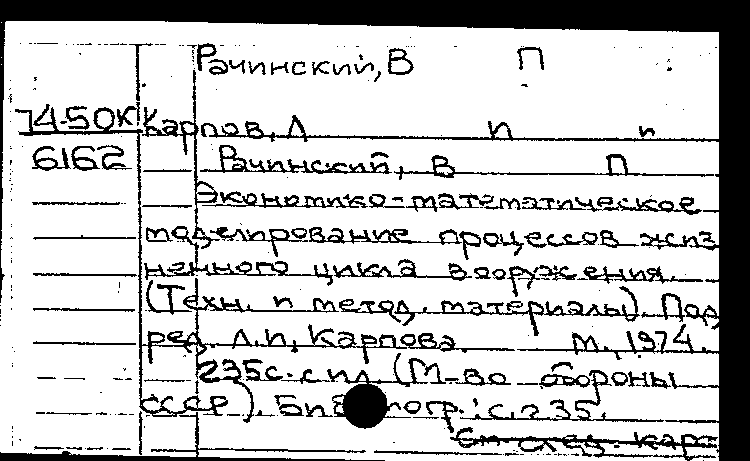 Рачинский, В П
74-50К Карпов, Л И и
6162 Рачинский, В П
Экономико-математическое
моделирование процессов жиз
ненного цикла вооружения.
(Техн. и метод. материалы). Под
ред. Л.И. Карпова. М., 1974.
235с. с ил. (М-во обороны
СССР). Библиогр.: с. 235.
См след. карт